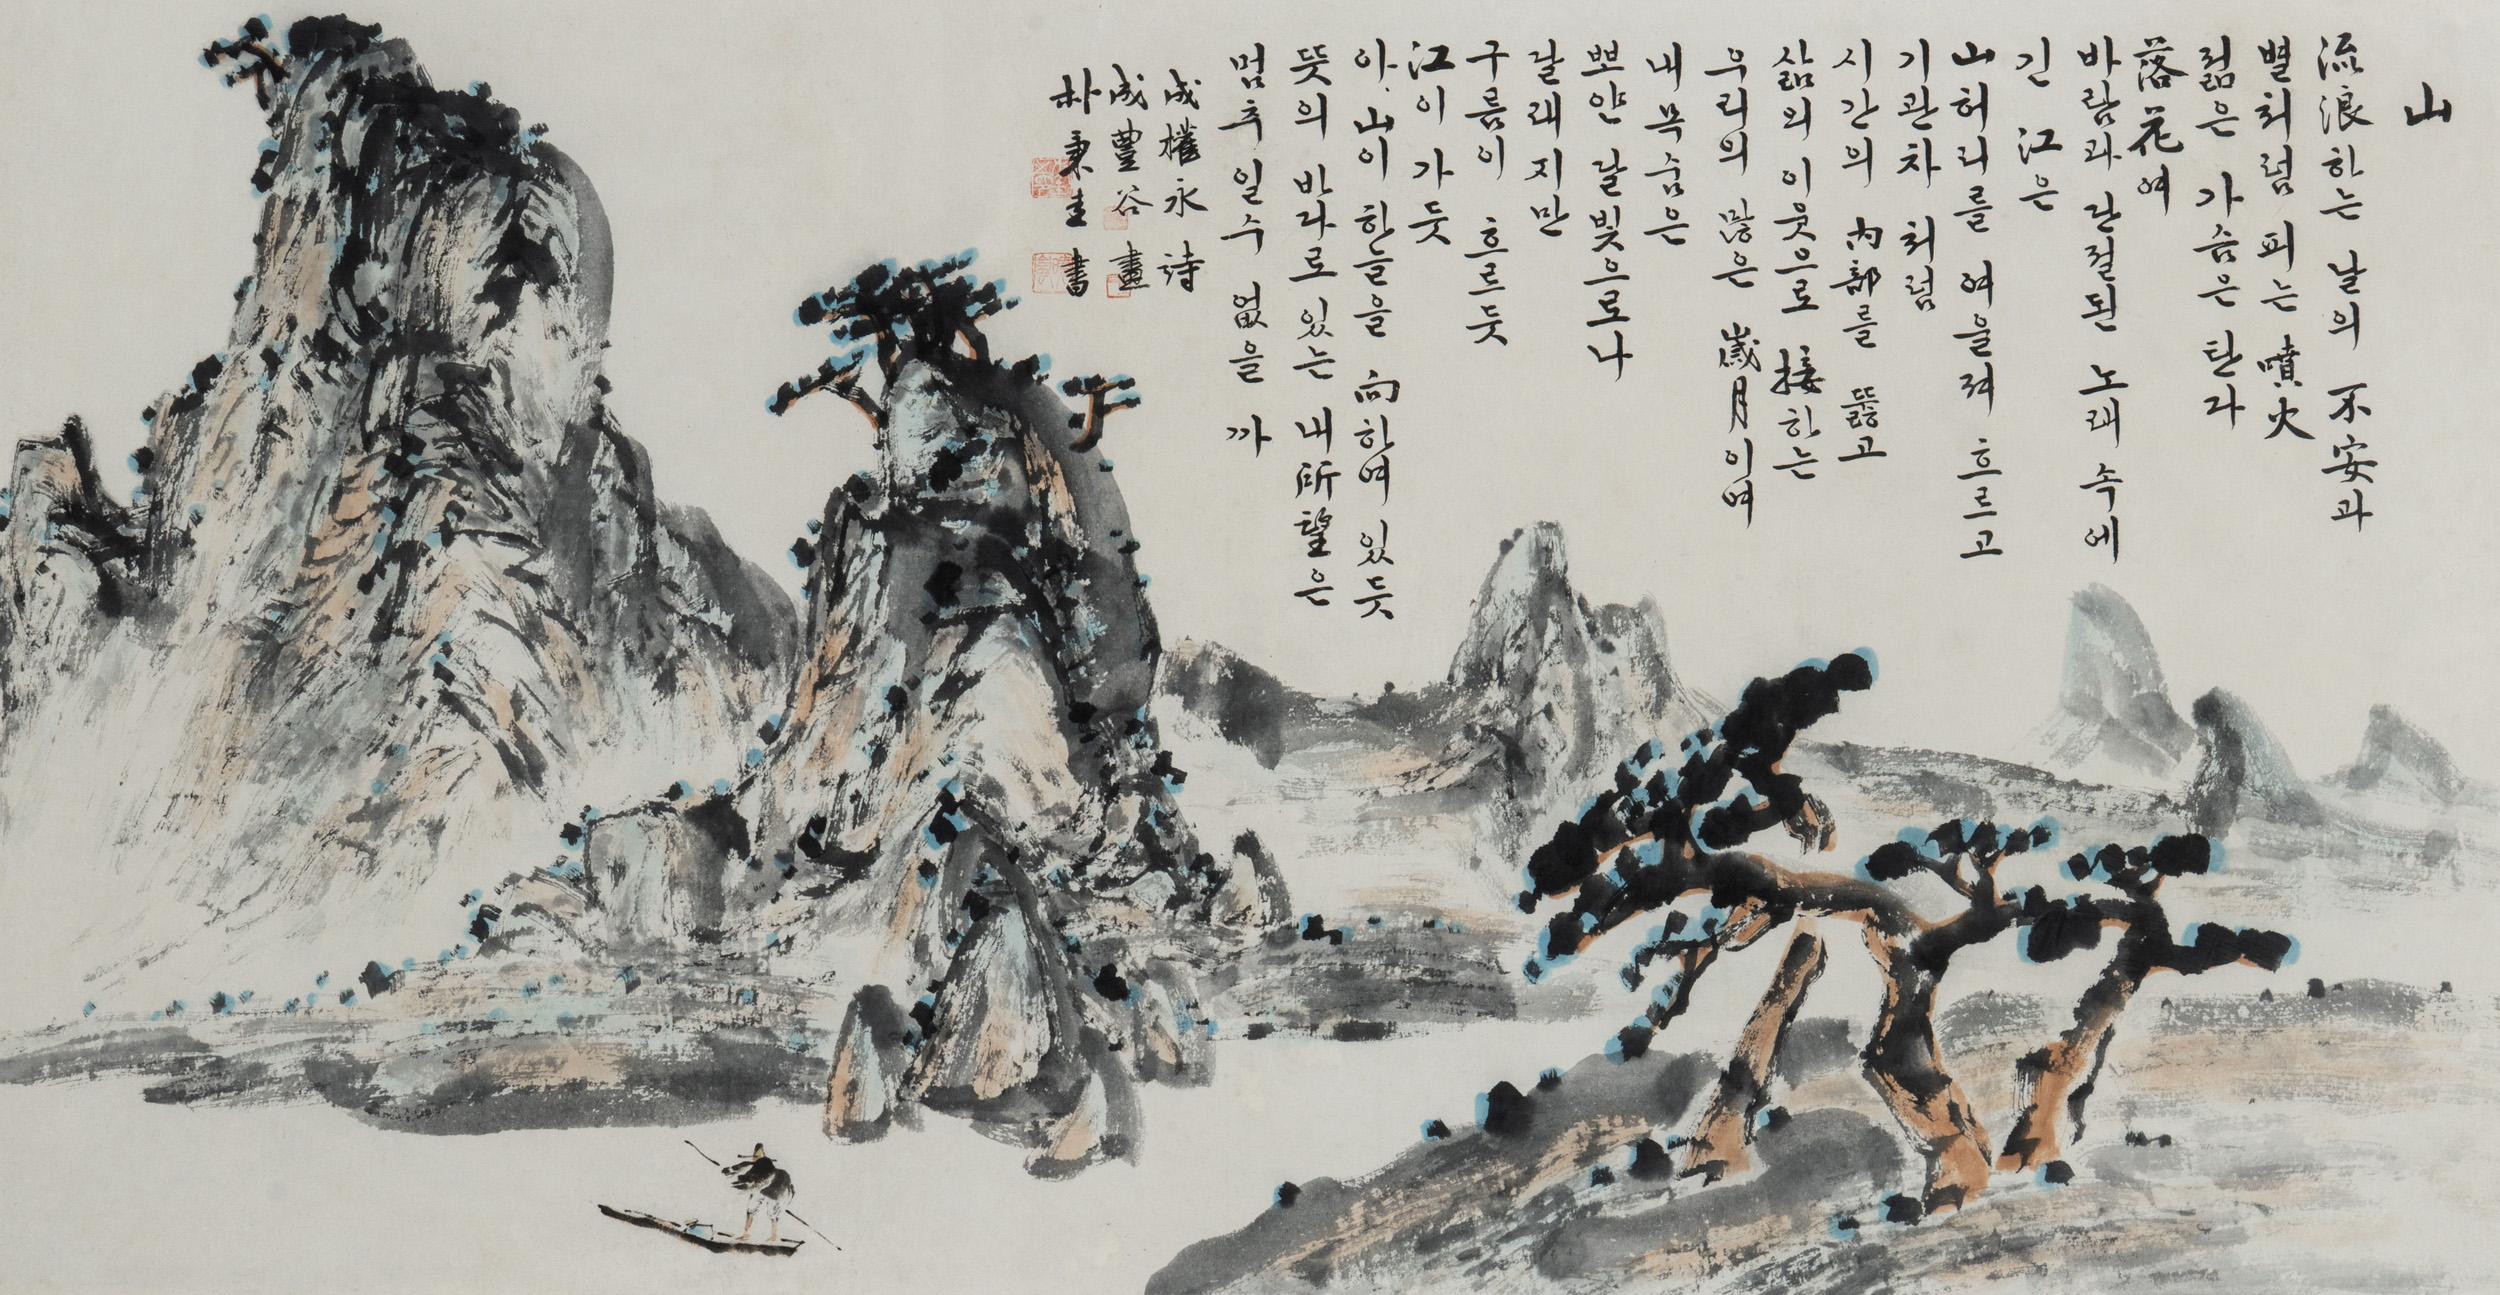 山
流浪하는 날의 不安과
별처럼 피는 噴火
젊은 가슴은 탄다
落花여
바람과 단절된 노래 속에
긴 江은
山허리를 여울져 흐르고
기관차 처럼
시간의 內部를 뚫고
삶의 이웃으로 接하는
우리의 많은 歲月이여
내 목숨은
뽀얀 달빛으로나
달래지만
구름이 흐르듯
江이 가듯
아, 山이 하늘을 向하여 있듯
뜻의 바다로 있는 내 所望은
멈추일수 없을까
成權永 詩
成豊谷 畫
朴秉圭 書